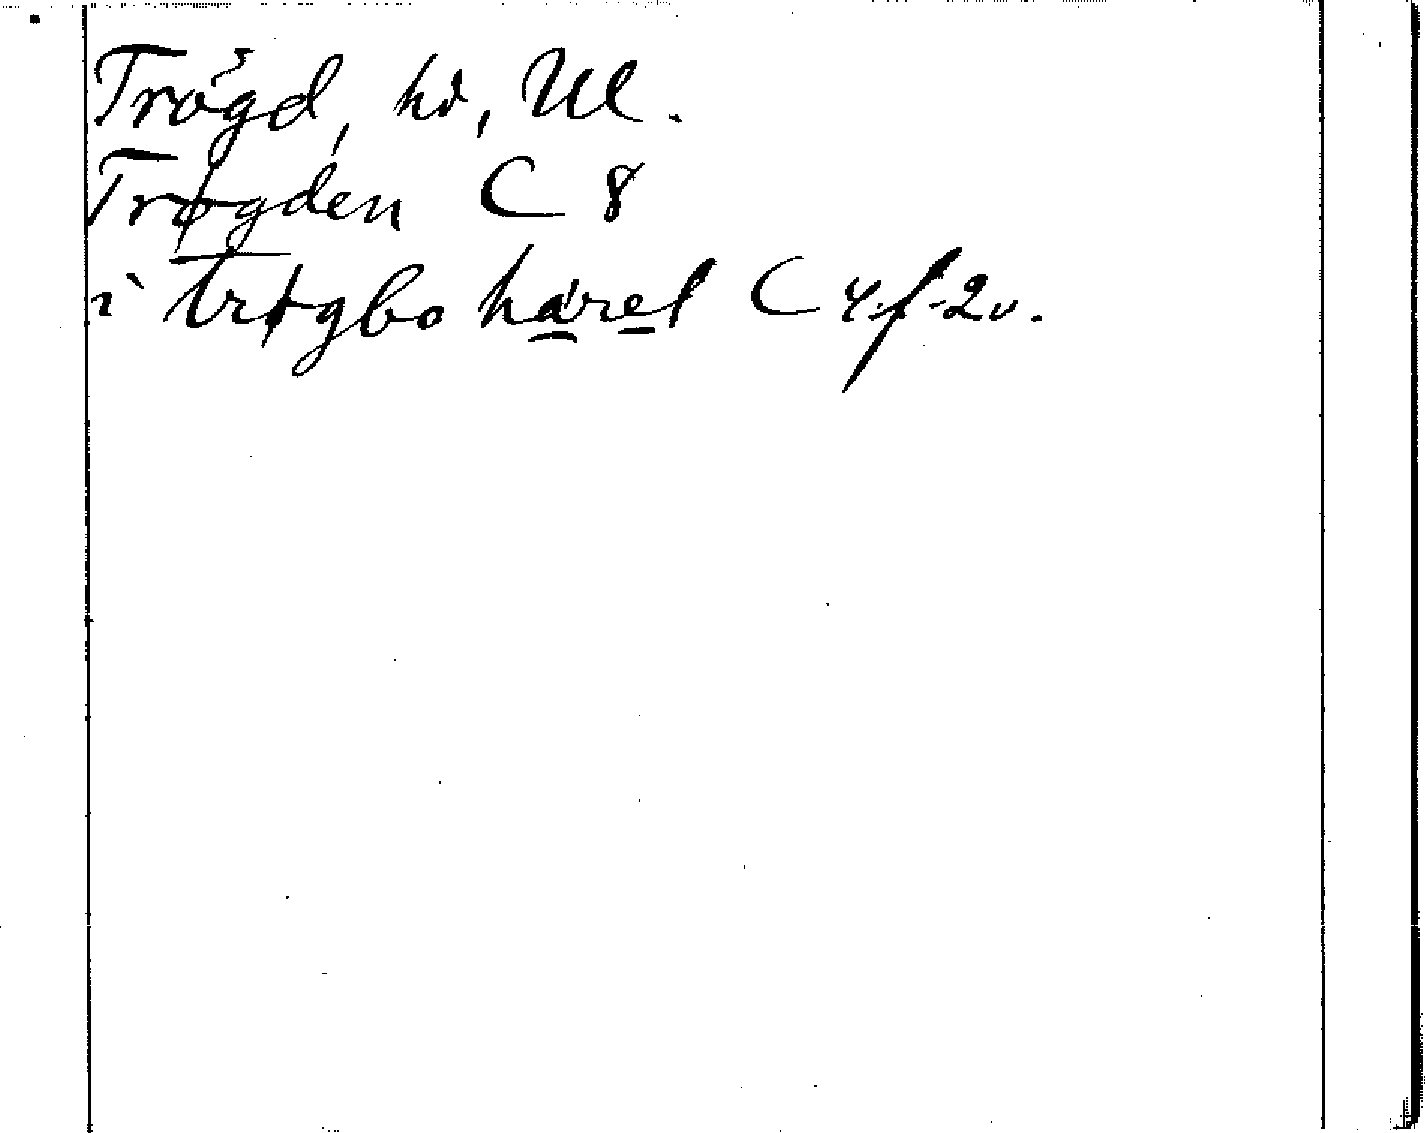 Trögd, hd, Ul.
Trøgden C 8
i trøgbo hárel C 4 f. 2v.